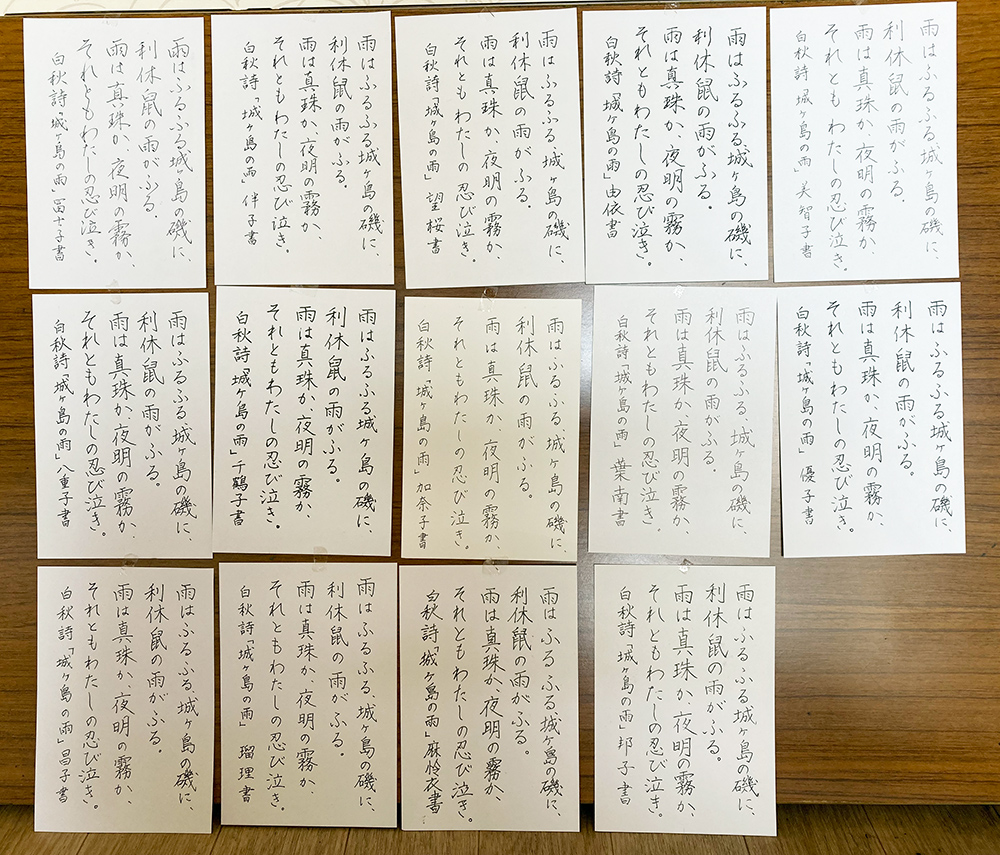 雨はふるふる、城ヶ島の磯に、
利休鼠の雨がふる。
雨は真珠か、夜明の霧か、
それともわたしの忍び泣き。
白秋詩「城ヶ島の雨」美智子書
雨はふるふる、城ヶ島の磯に、
利休鼠の雨がふる。
雨は真珠か、夜明の霧か、
それともわたしの忍び泣き。
白秋詩「城ヶ島の雨」由依書
雨はふるふる、城ヶ島の磯に、
利休鼠の雨がふる。
雨は真珠か、夜明の霧か、
それともわたしの忍び泣き。
白秋詩「城ヶ島の雨」望桜書
雨はふるふる城ヶ島の磯に、
利休鼠の雨がふる。
雨は真珠か、夜明の霧か、
それともわたしの忍び泣き。
白秋詩「城ヶ島の雨」伴子書
雨はふるふる城ヶ島の磯に、
利休鼠の雨がふる。
雨は真珠か、夜明の霧か、
それともわたしの忍び泣き。
白秋詩「城ヶ島の雨」冨士子書
雨はふるふる城ヶ島の磯に、
利休鼠の雨がふる。
雨は真珠か、夜明の霧か、
それともわたしの忍び泣き。
白秋詩「城ヶ島の雨」優子書
雨はふるふる、城ヶ島の磯に、
利休鼠の雨がふる。
雨は真珠か、夜明の霧か、
それともわたしの忍び泣き。
白秋詩「城ヶ島の雨」葉南書
雨はふるふる、城ヶ島の磯に、
利休鼠の雨がふる。
雨は真珠か、夜明の霧か、
それともわたしの忍び泣き。
白秋詩「城ヶ島の雨」加奈子書
雨はふるふる城ヶ島の磯に、
利休鼠の雨がふる。
雨は真珠か、夜明の霧か、
それともわたしの忍び泣き。
白秋詩「城ヶ島の雨」千鶴子書
雨はふるふる城ヶ島の磯に、
利休鼠の雨がふる。
雨は真珠か、夜明の霧か、
それともわたしの忍び泣き。
白秋詩「城ヶ島の雨」八重子書
雨はふるふる城ヶ島の磯に、
利休鼠の雨がふる。
雨は真珠か、夜明の霧か、
それともわたしの忍び泣き。
白秋詩「城ヶ島の雨」邦子書
雨はふるふる、城ヶ島の磯に、
利休鼠の雨がふる。
雨は真珠か、夜明の霧か、
それともわたしの忍び泣き。
白秋詩「城ヶ島の雨」麻怜衣書
雨はふるふる、城ヶ島の磯に、
利休鼠の雨がふる。
雨は真珠か、夜明の霧か、
それともわたしの忍び泣き。
白秋詩「城ヶ島の雨」瑠理書
雨はふるふる城ヶ島の磯に、
利休鼠の雨がふる。
雨は真珠か、夜明の霧か、
それともわたしの忍び泣き。
白秋詩「城ヶ島の雨」昌子書